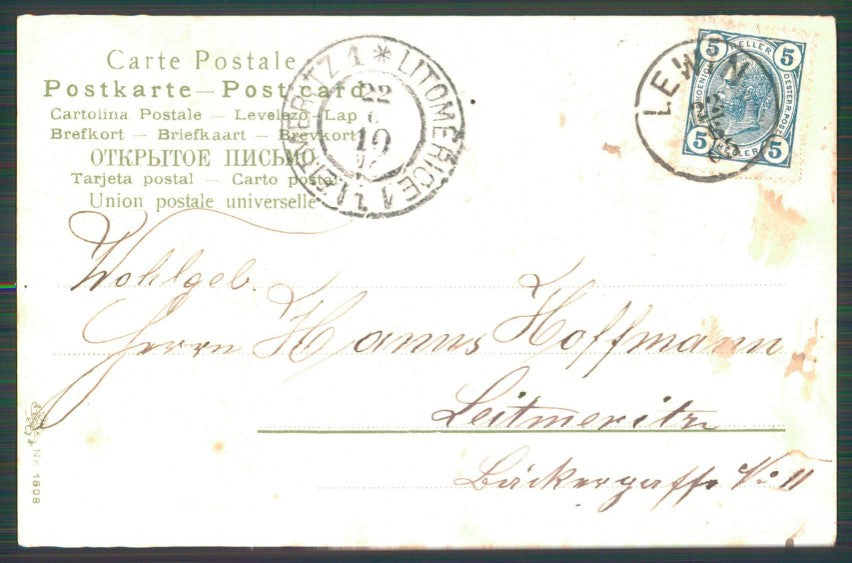 Carte Postale
Postkarte — Post card
Cartolina Postale — Levelező Lap
Brefkort — Briefkaart — Brevkort
ОТКРЫТОЕ ПИСЬМО
Tarjeta postal — Carto postal
Union postale universelle
LEITMERITZ 1 * LITOMĚŘICE 1
22
10
LEWIN
5 HELLER 5
5 HELLER 5
OESTERR.POST
Wohlgeb.
Herrn Hanns Hoffmann
Leitmeritz
Bäckergasse No 11
No. 1808